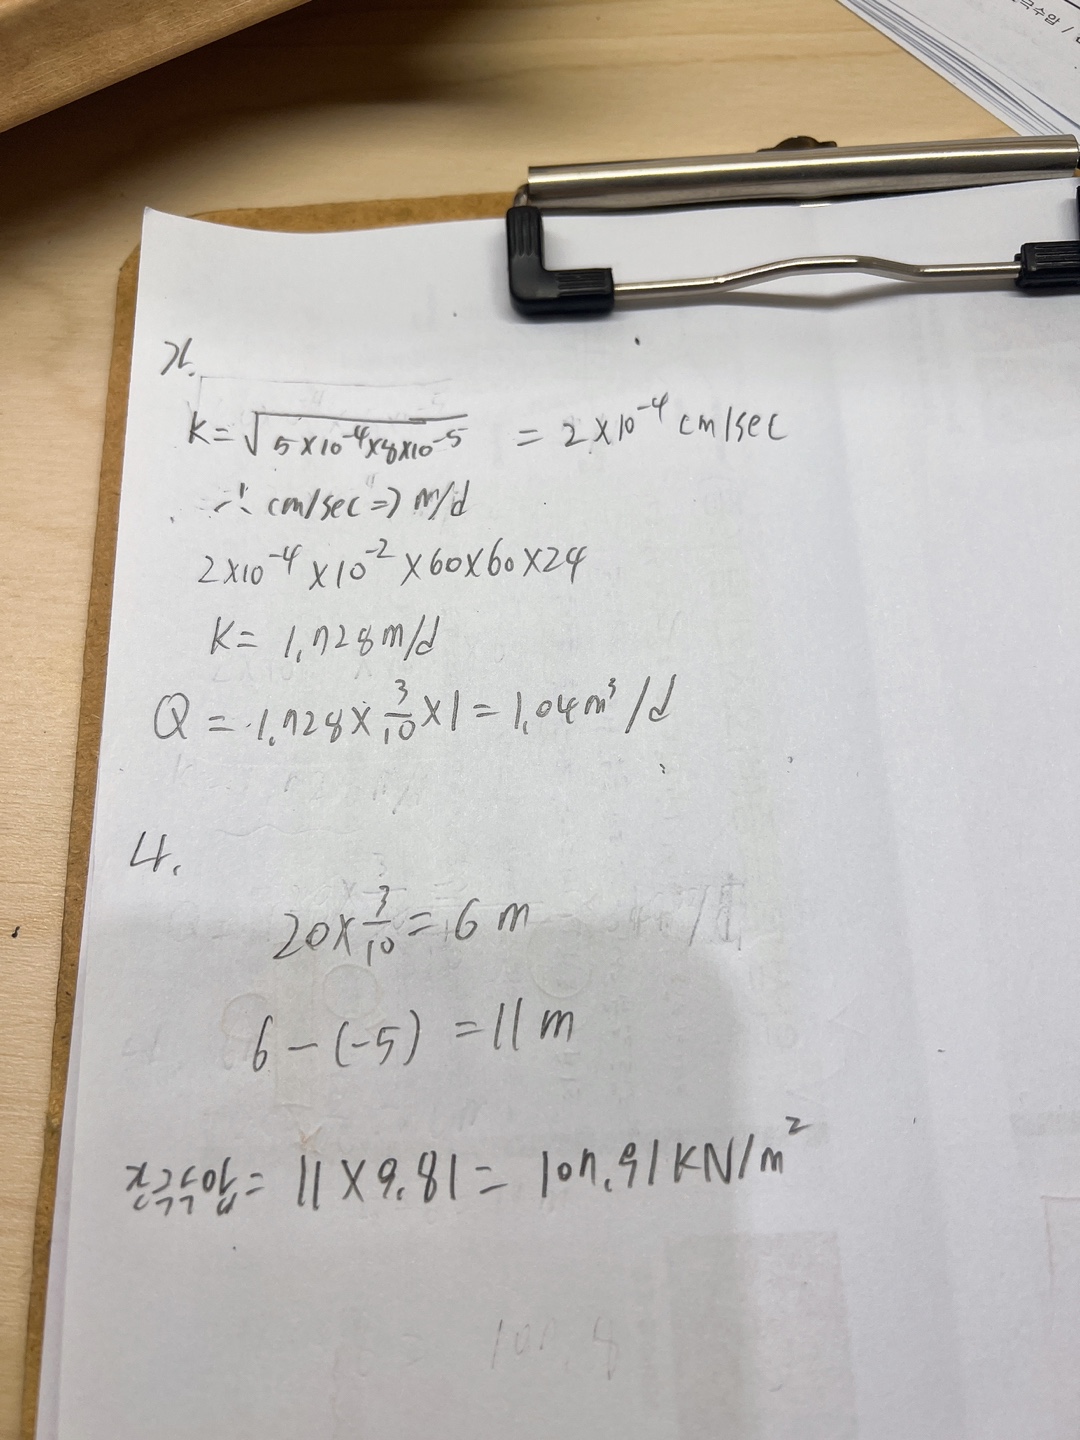 수압 /
가.
K = √5×10⁻⁴×8×10⁻⁵ = 2×10⁻⁴ cm/sec
∴ cm/sec ⇒ m/d
2×10⁻⁴ ×10⁻² ×60×60×24
K = 1,728m/d
Q = 1,728× 3/10 ×1 = 1,04m³/d
4.
20× 3/10 = 6 m
6 - (-5) = 11 m
간극수압 = 11 × 9.81 = 107.91 KN/m²